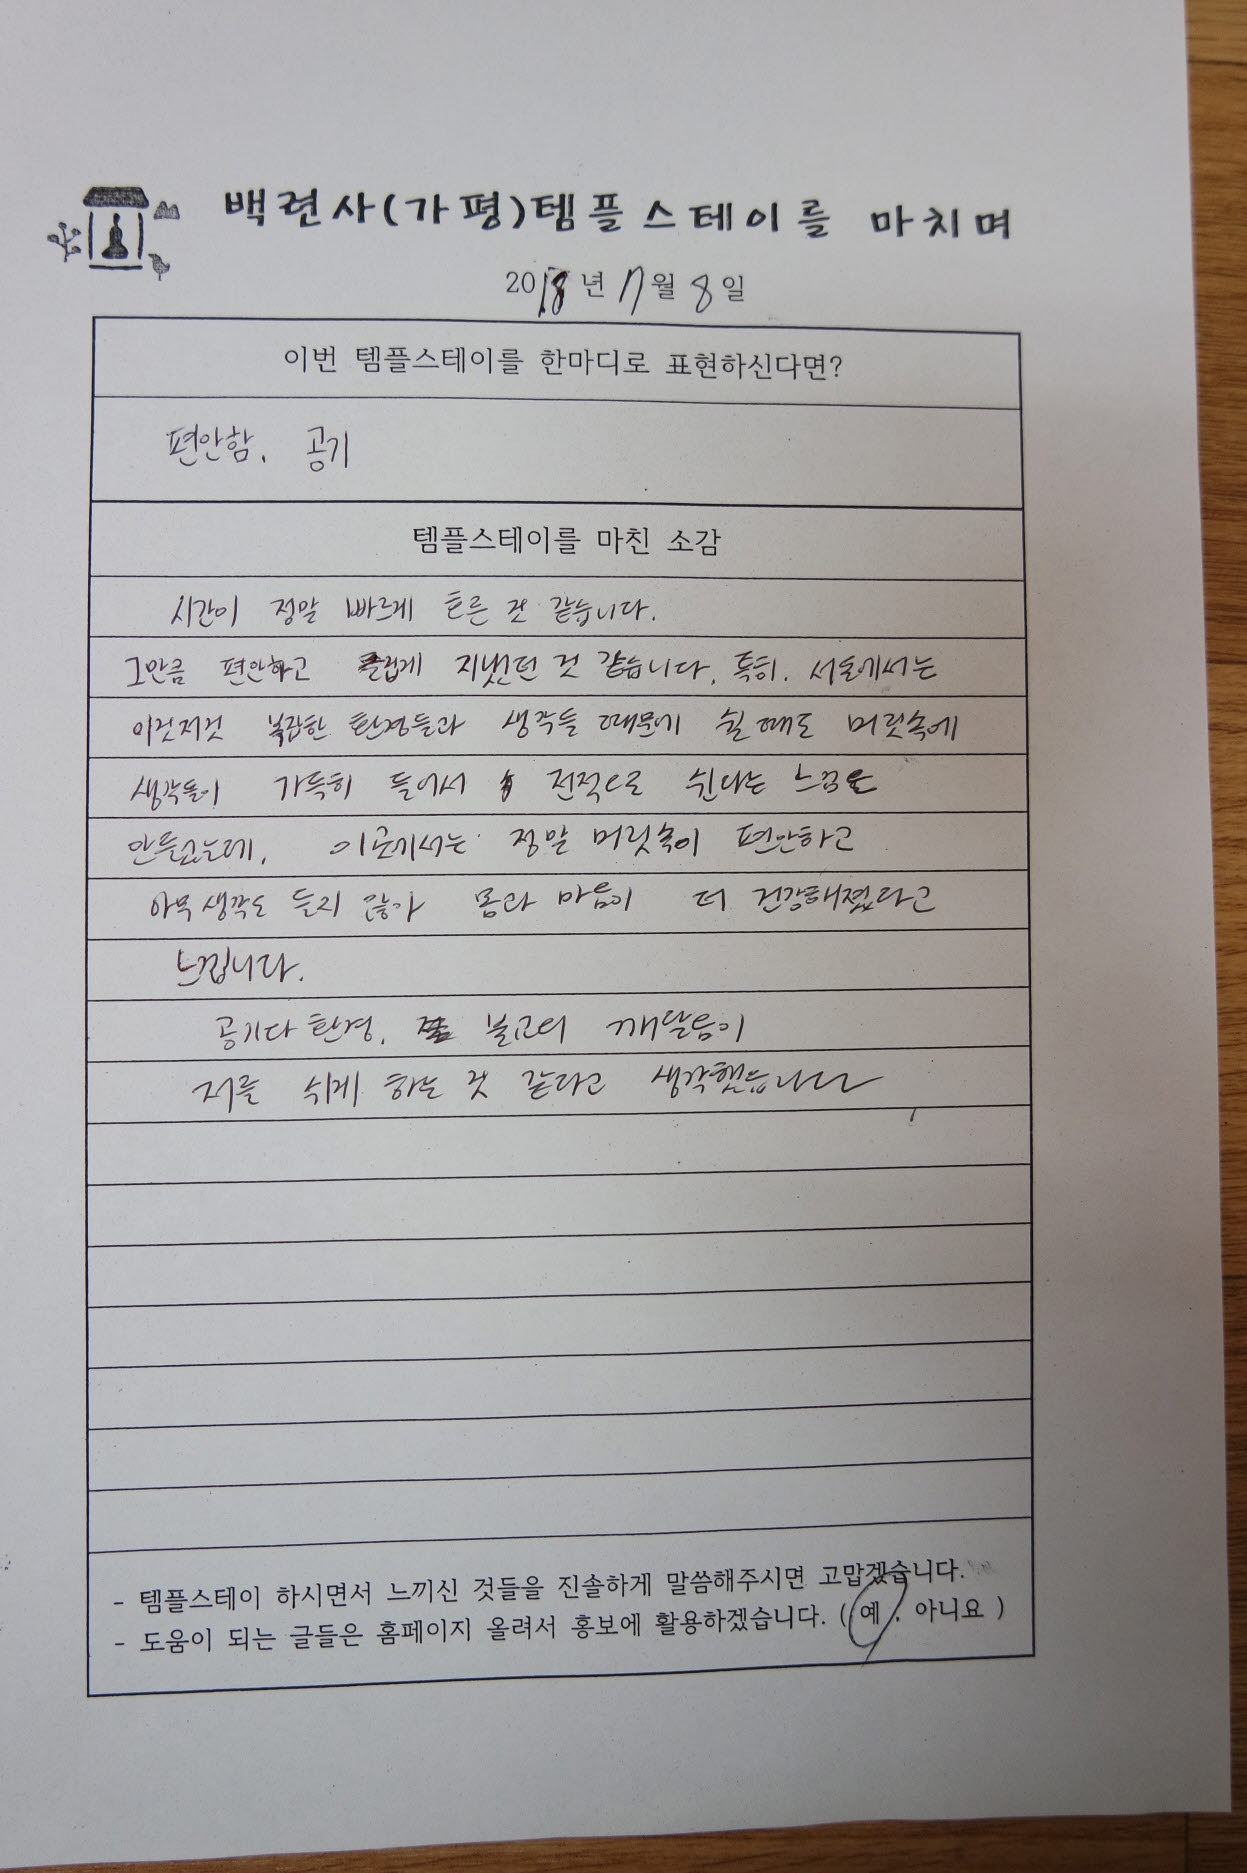 백련사(가평)템플스테이를 마치며
2018년 7월 8일
이번 템플스테이를 한마디로 표현하신다면?
편안함, 공기
템플스테이를 마친 소감
시간이 정말 빠르게 흐른 것 같습니다.
그만큼 편안하고 즐겁게 지냈던 것 같습니다. 특히. 서울에서는
이것저것 복잡한 환경들과 생각들 때문에 쉴 때도 머릿속에
생각들이 가득히 들어서 전적으로 쉰다는 느낌을
안들었는데, 이곳에서는 정말 머릿속이 편안하고
아무 생각도 들지 않아 몸과 마음이 더 건강해졌다고
느낍니다.
공기다 환경, 불교의 깨달음이
저를 쉬게 하는 것 같다고 생각했습니다
- 템플스테이 하시면서 느끼신 것들을 진솔하게 말씀해주시면 고맙겠습니다.
- 도움이 되는 글들은 홈페이지 올려서 홍보에 활용하겠습니다. ( 예 , 아니요 )